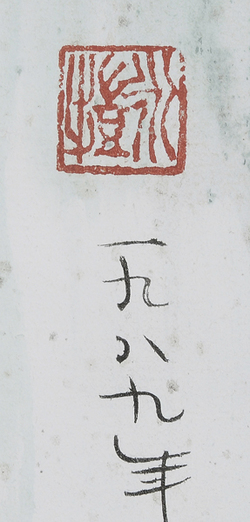 一九八九年